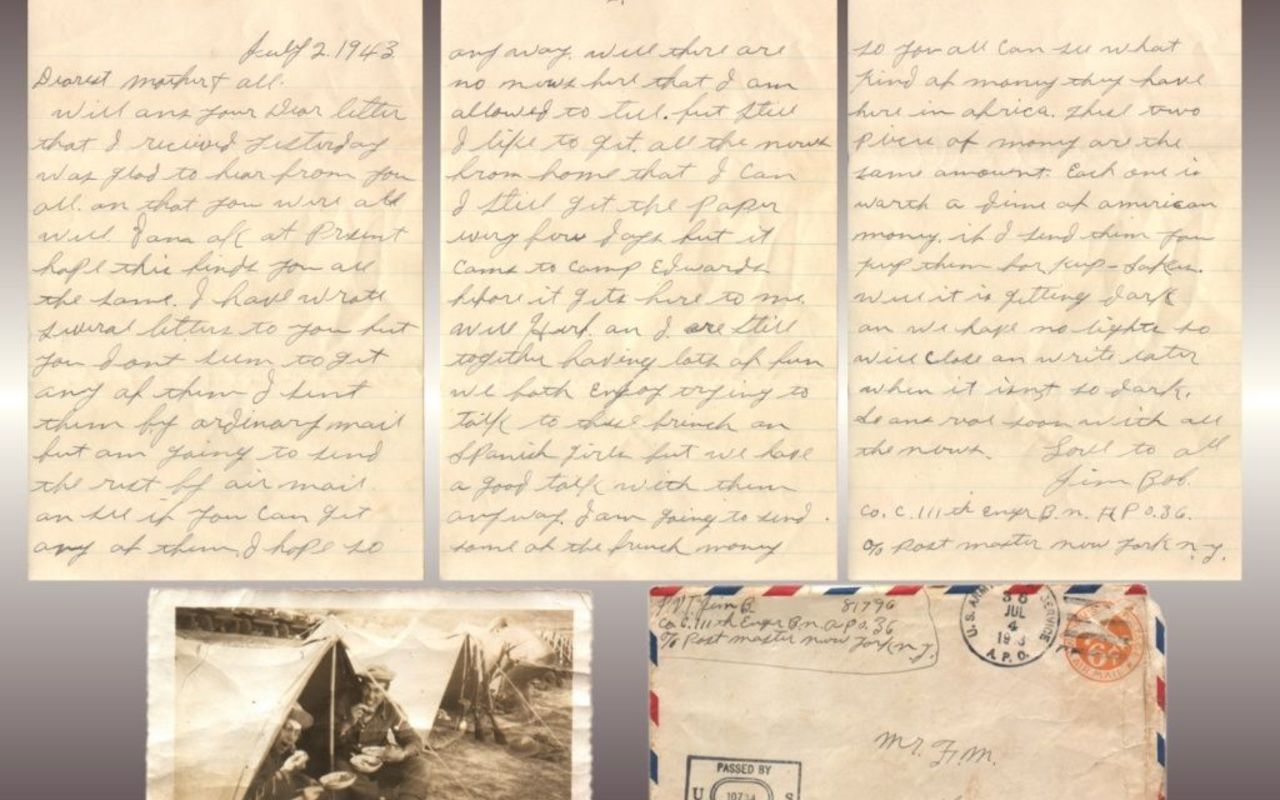 July 2. 1943
Dearest Mother & all.
Will ans your Dear letter
that I recieved yesterday
was glad to hear from you
all. an that you were all
well. I am ok at Prsent
hope this finds you all
the same. I have wrote
several letters to you but
you dont seem to get
any of them I sent
them by ordinary mail
but am going to send
the rest by air mail
an see if you can get
any of them, I hope so
any way. well there are
no news here that I am
allowed to tell. but still
I like to get all the news
from home that I can
I still get the Paper
every few days but it
Cams to Camp Edwards
before it gets here to me.
Well Herb. an I are still
together having lots of fun
we both Enjoy trying to
talk to these french an
Spanish girls but we have
a good talk with them
anyway. I am going to send
some of the french money
so you all can see what
kind of money they have
here in africa. these two
pieces of money are the
same amount. Each one is
worth a dime of american
money. if I send them you
keep them for keep-sakes.
well it is getting dark
an we have no lights so
will close an write later
when it isnt so dark.
So ans real soon with all
the news. Love to all
Jim Bob.
Co. C. 111th Engr B.n. A P O. 36.
c/o Post master new york n.y.
PVT. Jim B. 81796
Co C. 111th Engr B.n. A.P.O. 36
c/o Post master new york n.y.
U.S. ARMY SERVICE
36
JUL
4
1943
A.P.O.
6¢
AIR MAIL
Mr. F.M.
PASSED BY
U S
10734